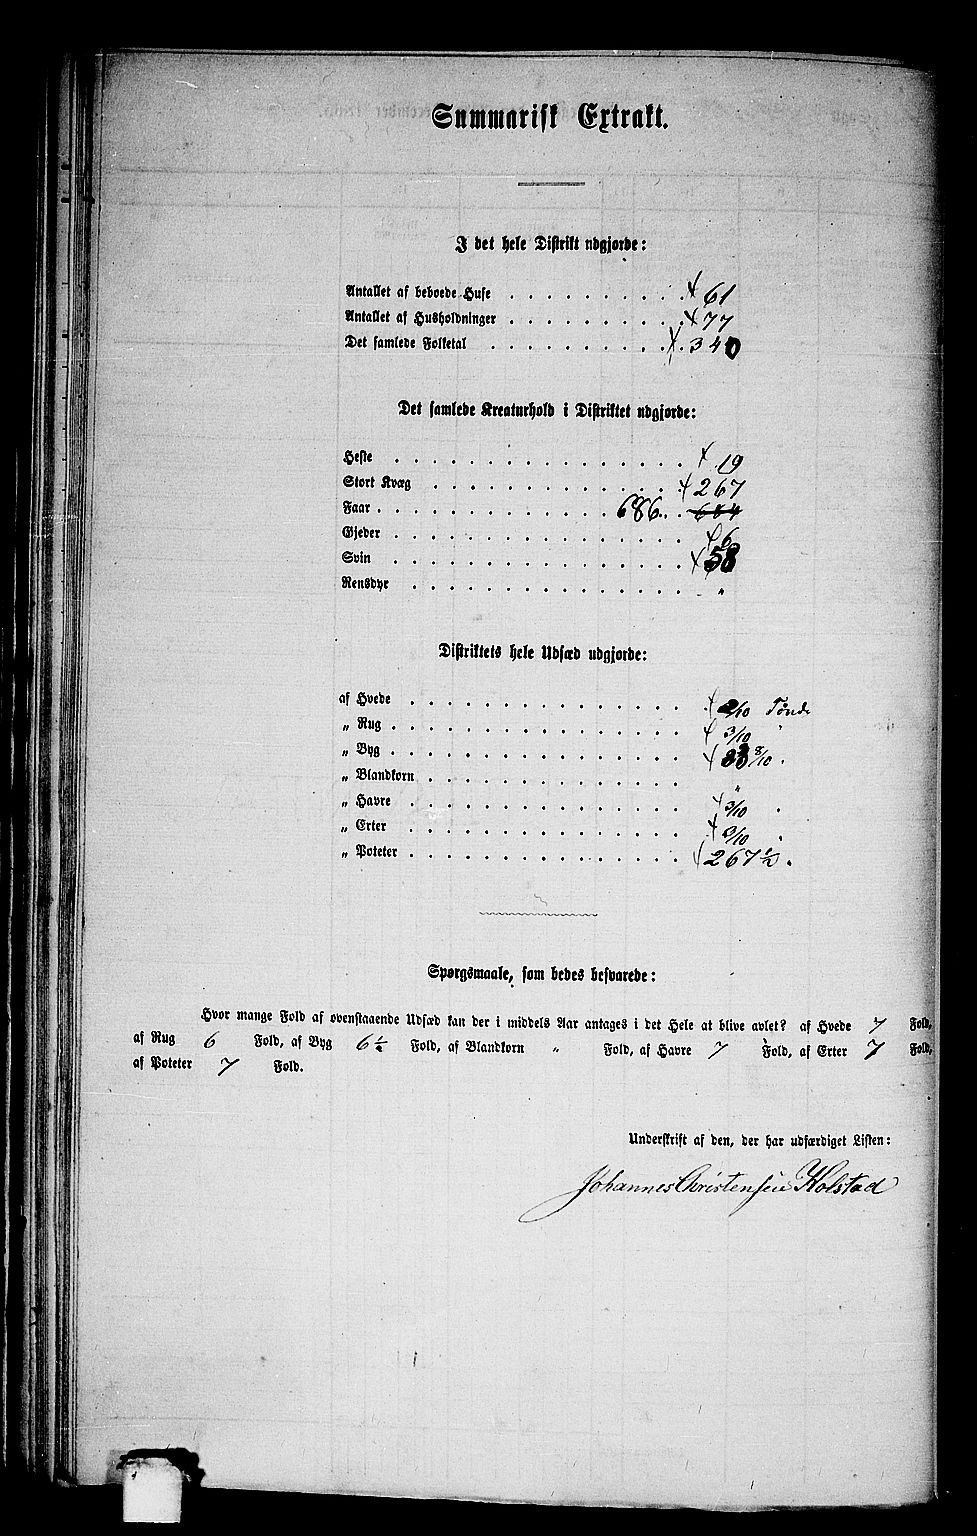 Summarisk Extrakt.
I det hele Distrikt udgjorde:
Antallet af beboede Huse . . . . . . . . . 61
Antallet af Husholdninger . . . . . . . . . 77
Det samlede Folketal . . . . . . . . . 340
Det samlede Kreaturhold i Distriktet udgjorde:
Heste . . . . . . . . . 19
Stort Kvæg . . . . . . . . . 267
Faar . . . . . . . . . 686
Gjeder . . . . . . . . . 6
Svin . . . . . . . . . 58
Rensdyr . . . . . . . . . "
Distriktets hele Udsæd udgjorde:
af Hvede . . . . . . . . . 2/10 Tönde
„ Rug . . . . . . . . . 3/10 "
„ Byg . . . . . . . . . 8/10
„ Blandkorn . . . . . . . . . "
„ Havre . . . . . . . . . 3/10
„ Erter . . . . . . . . . /10
„ Poteter . . . . . . . . . 267 1/2
Spørgsmaale, som bedes besvarede:
Hvor mange Fold af ovenstaaende Udsæd kan der i middels Aar antages i det Hele at blive avlet? af Hvede 7 Fold,
af Rug 6 Fold, af Byg 6 1/2 Fold, af Blandkorn " Fold, af Havre 7 Fold, af Erter 7 Fold,
af Poteter 7 Fold.
Underskrift af den, der har udfærdiget Listen:
Johannes Christensen Holstad